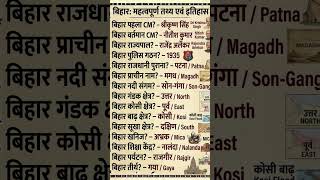 बिहार: महत्वपूर्ण तथ्य एवं इतिहास
बिहार पहला CM? – श्रीकृष्ण सिंह
बिहार वर्तमान CM? – नीतीश कुमार
बिहार राज्यपाल? – राजेंद्र अर्लेकर
बिहार पुलिस गठन? – 1935
बिहार राजधानी पुराना? – पटना / Patna
बिहार प्राचीन नाम? – मगध / Magadh
बिहार नदी संगम? – सोन-गंगा / Son-Gang
बिहार गंडक क्षेत्र? – उत्तर / North
बिहार कोसी क्षेत्र? – पूर्व / East
बिहार बाढ़ क्षेत्र? – कोसी / Kosi
बिहार सूखा क्षेत्र? – दक्षिण / South
बिहार खनिज? – अभ्रक / Mica
बिहार शिक्षा केंद्र? – नालंदा / Nalanda
बिहार पर्यटन? – राजगीर / Rajgir
बिहार तीर्थ? – गया / Gaya
उत्तर
North
पूर्व
East
कोसी बाढ़